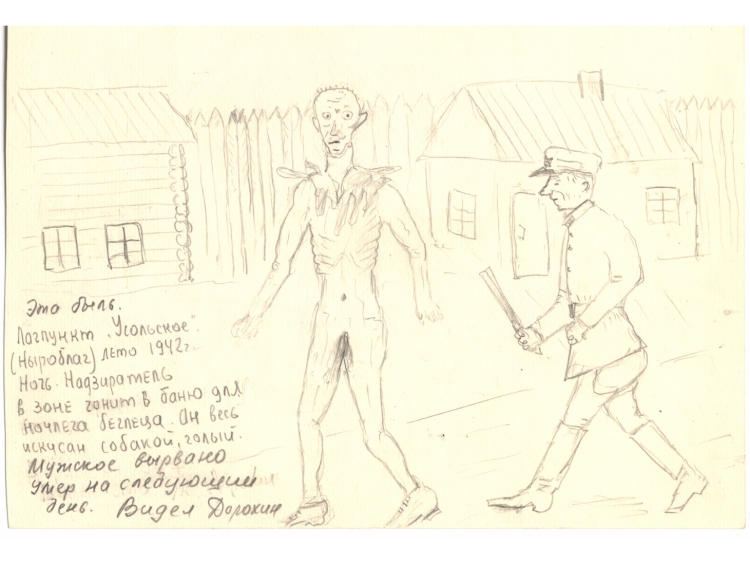 Это быль.
Лагпункт "Усольское".
(Ныроблаг) лето 1942г.
Ночь. Надзиратель
в зоне гонит в баню для
ночлега беглеца. Он весь
искусан собакой, голый.
Мужское вырвано
Умер на следующий
день. Видел Дорохин